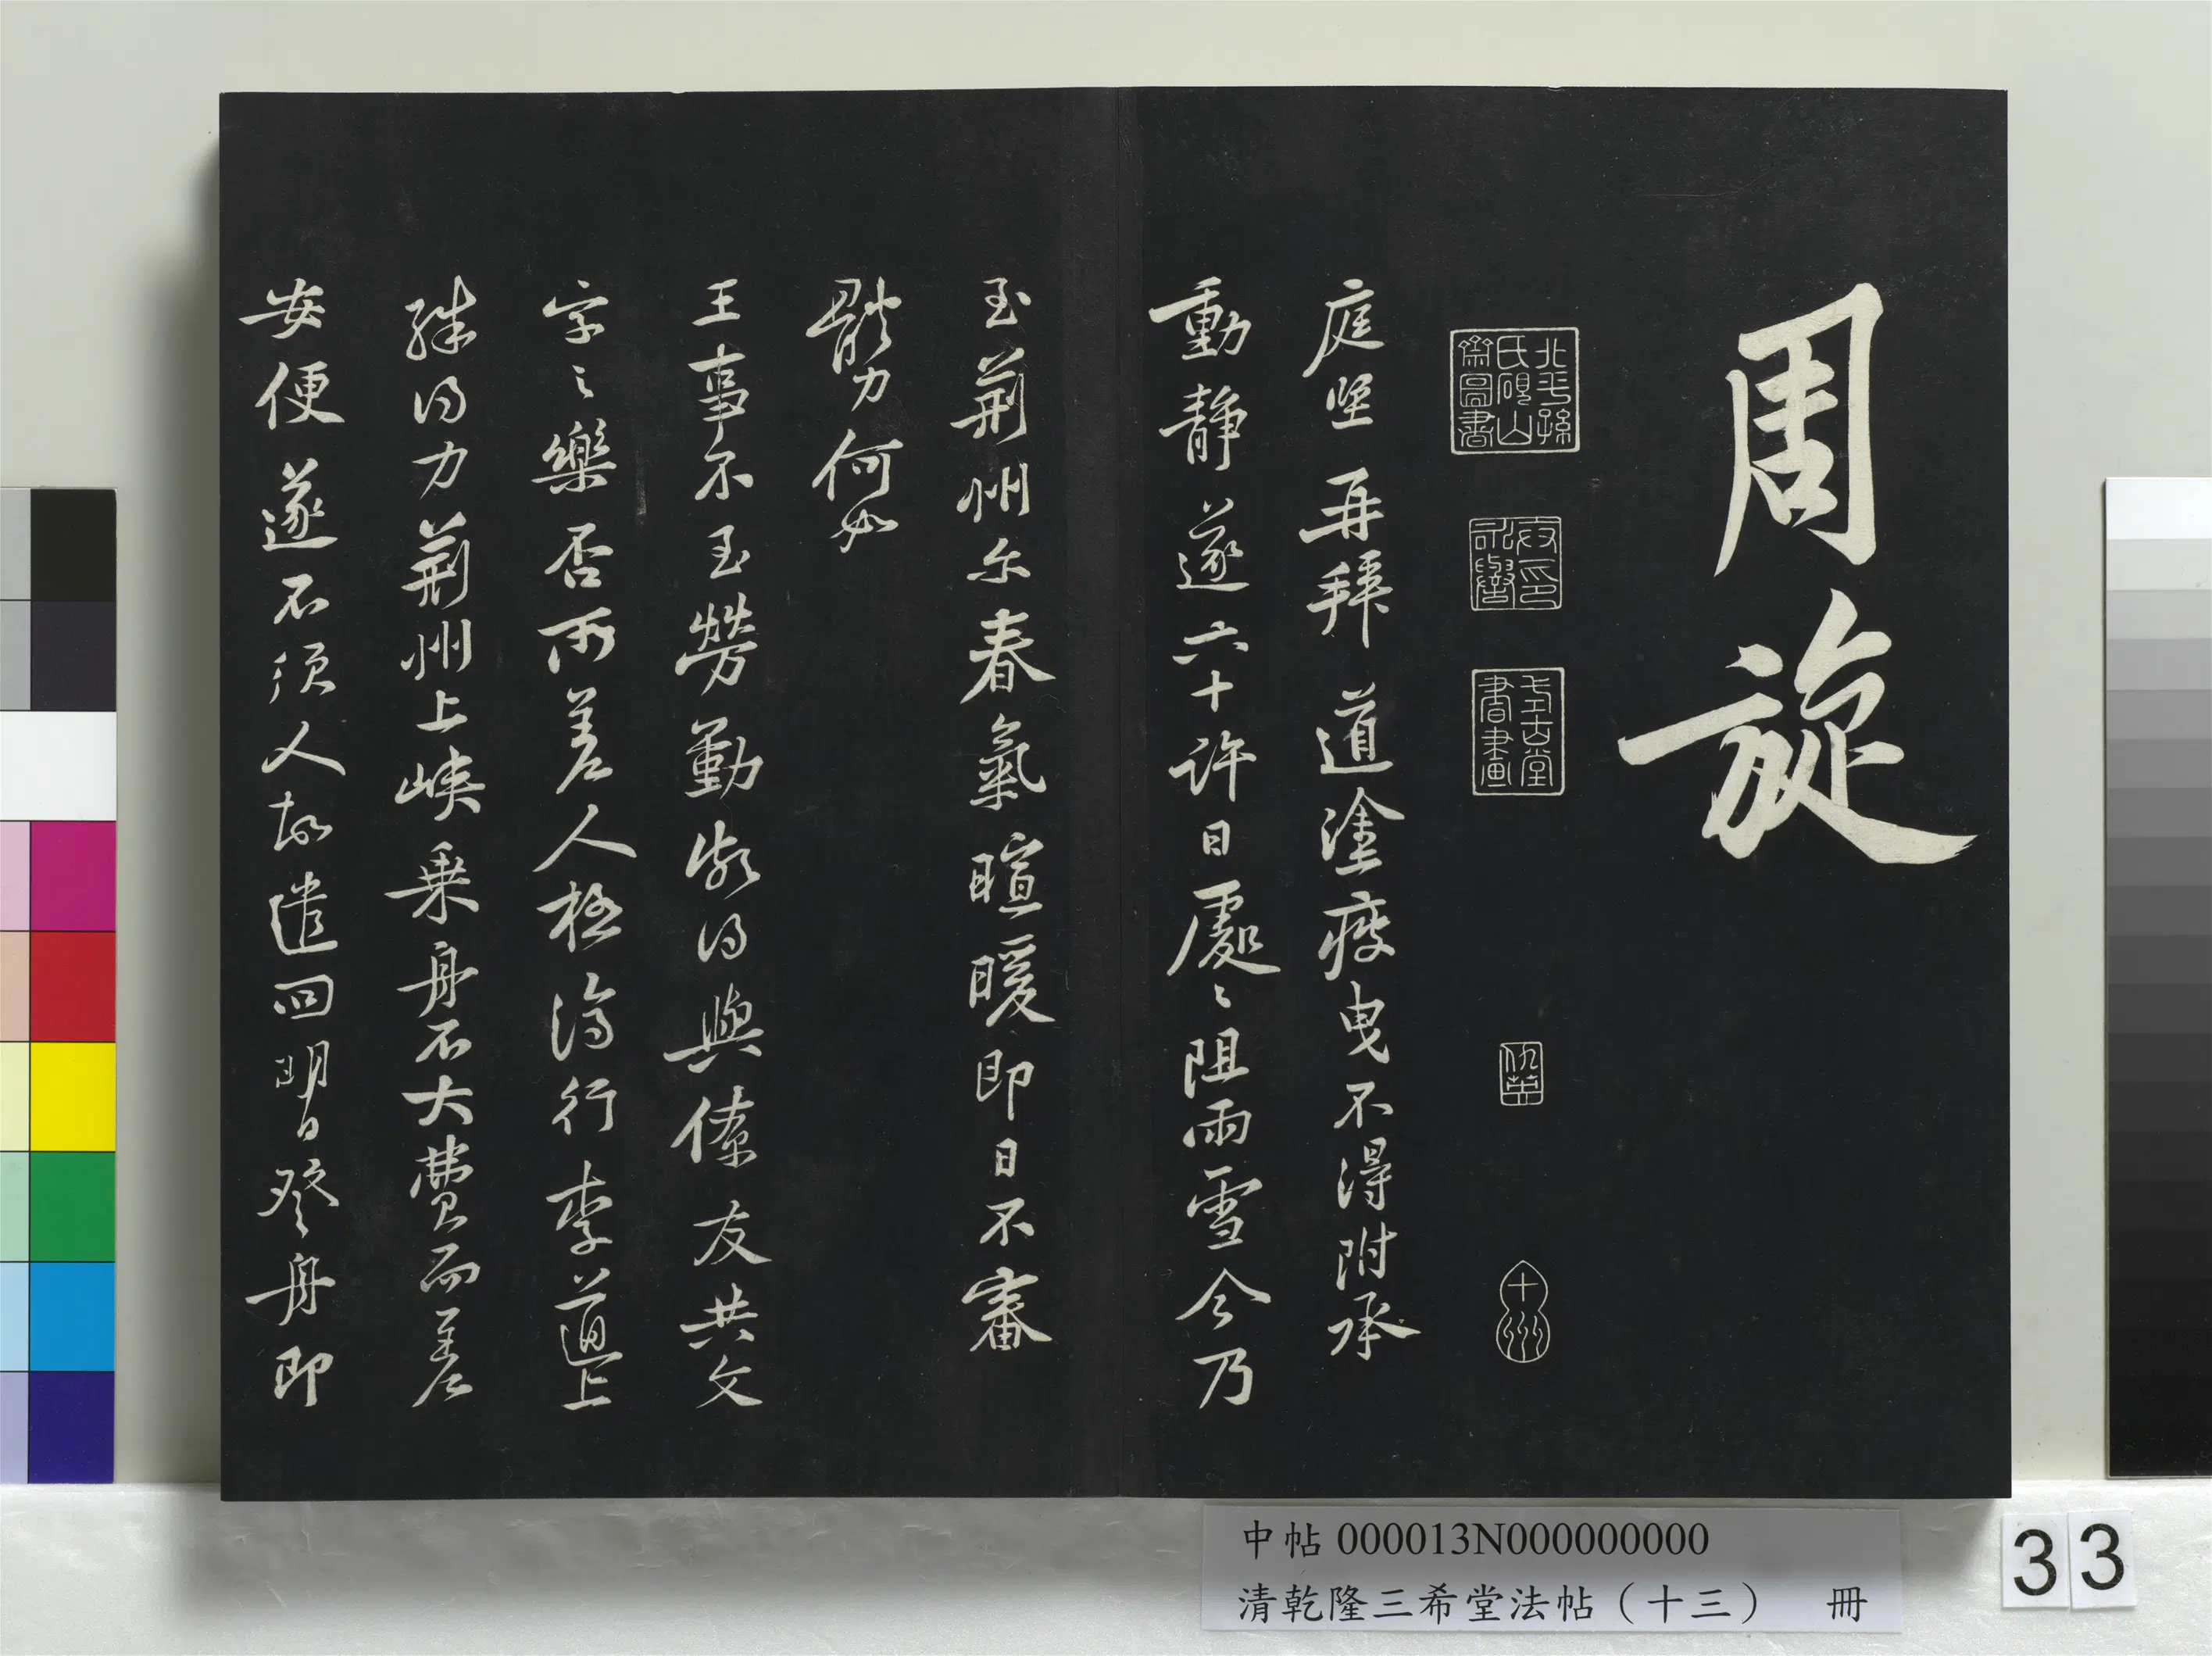 周旋
北平孫氏硯山齋圖書
式古堂書畫
仇英
十州
庭堅再拜道塗疲曳不得附承
動靜遂六十許日處〻阻雨雪今乃
至荆州尓春氣暄暖即日不審
體力何如
王事不至勞勤頗得與僚友共文
字之樂否所差人極濟行李道上
殊得力荆州上峽乗舟不大費而差
安便遂不須人故遣回明日登舟即
中帖 000013N000000000
清乾隆三希堂法帖（十三） 冊
33